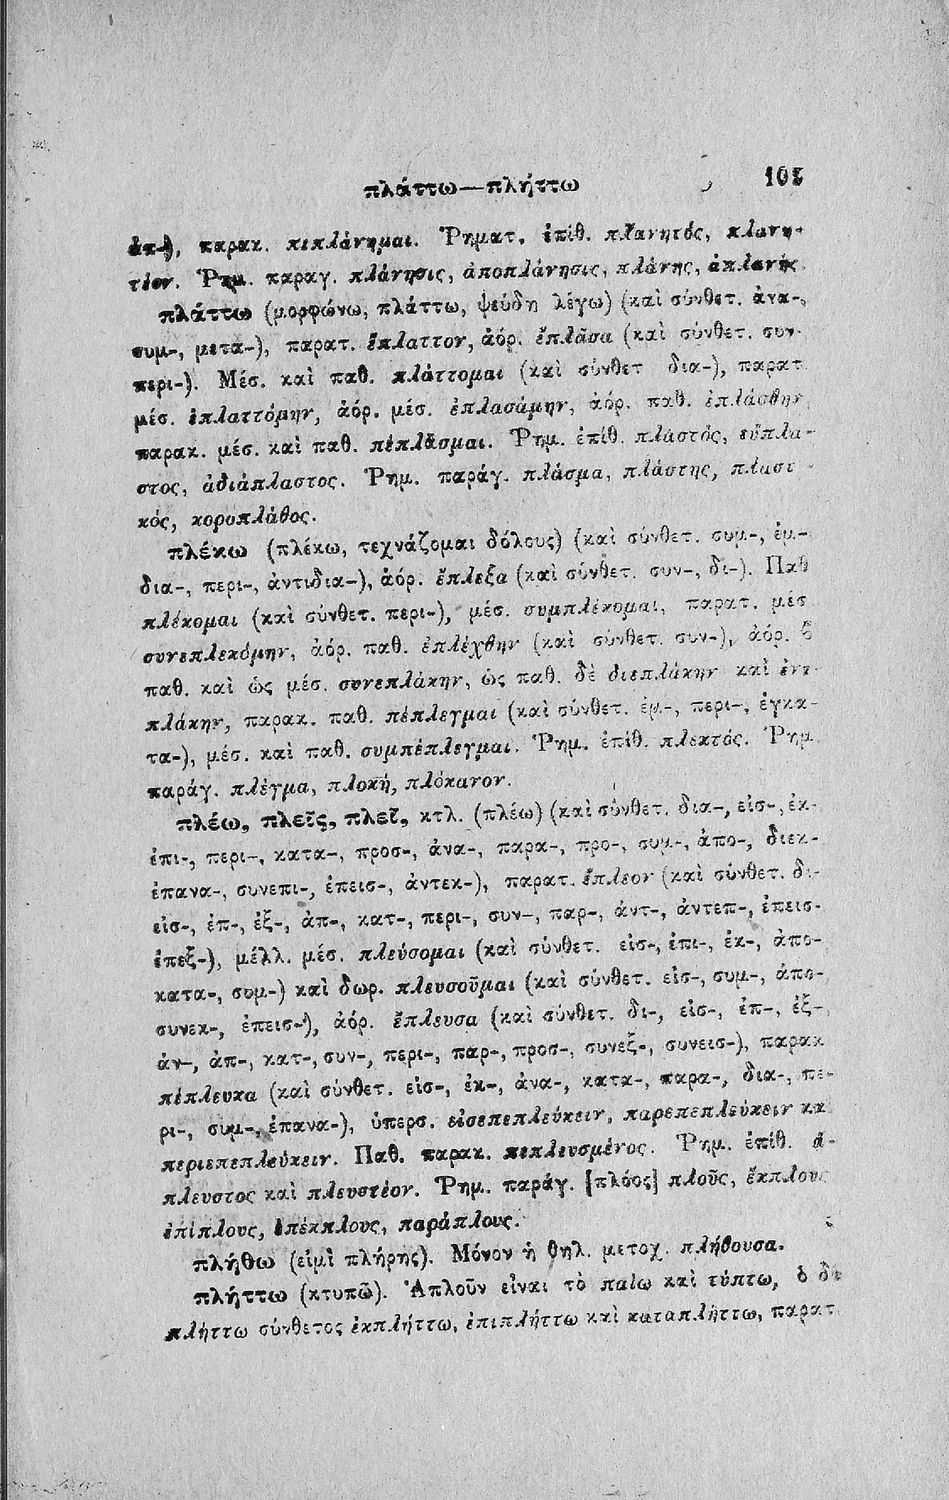 πλάττω—πλήττω 105
ἀπ-), παρακ. πεπλάνημαι. Ῥηματ. ἐπίθ. πλανητός, πλανη-
τέον. Ῥημ. παραγ. πλάνησις, ἀποπλάνησις, πλάνης, ἀπλανής.
πλάττω (μορφώνω, πλάττω, ψεύδη λέγω) (καὶ σύνθετ. ἀνα-,
συμ-, μετα-), παρατ. ἔπλαττον, ἀόρ. ἔπλασα (καὶ σύνθετ. συν-
περι-). Μέσ. καὶ παθ. πλάττομαι (καὶ σύνθετ δια-), παρατ.
μέσ. ἐπλαττόμην, ἀόρ. μέσ. ἐπλασάμην, ἀόρ. παθ. ἐπλάσθην,
παρακ. μέσ. καὶ παθ. πέπλασμαι. Ῥημ. ἐπίθ. πλαστός, εὔπλα-
στος, ἀδιάπλαστος. Ῥημ. παράγ. πλάσμα, πλάστης, πλαστι-
κός, κοροπλάθος.
πλέκω (πλέκω, τεχνάζομαι δόλους) (καὶ σύνθετ. συμ-, ἐμ-,
δια-, περι-, ἀντιδια-), ἀόρ. ἔπλεξα (καὶ σύνθετ. συν-, δι-). Παθ
πλέκομαι (καὶ σύνθετ. περι-), μέσ. συμπλέκομαι, παρατ. μέσ
συνεπλεκόμην, ἀόρ. παθ. ἐπλέχθην (καὶ σύνθετ. συν-), ἀόρ. β
παθ. καὶ ὡς μέσ. συνεπλάκην, ὡς παθ. δὲ διεπλάκην καὶ ἐνε-
πλάκην, παρακ. παθ. πέπλεγμαι (καὶ σύνθετ. ἐμ-, περι-, ἐγκα-
τα-), μέσ. καὶ παθ. συμπέπλεγμαι. Ῥημ. ἐπίθ. πλεκτός. Ῥημ.
παράγ. πλέγμα, πλοκή, πλόκανον.
πλέω, πλεῖς, πλεῖ, κτλ. (πλέω) (καὶ σύνθετ. δια-, εἰσ-, ἐκ-
ἐπι-, περι-, κατα-, προσ-, ἀνα-, παρα-, προ-, συμ-, ἀπο-, διεκ-
ἐπανα-, συνεπι-, ἐπεισ-, ἀντεκ-), παρατ. ἔπλεον (καὶ σύνθετ. δι-
εἰσ-, ἐπ-, ἐξ-, ἀπ-, κατ-, περι-, συν-, παρ-, ἀντ-, ἀντεπ-, ἐπεισ-
ἐπεξ-), μέλλ. μέσ. πλεύσομαι (καὶ σύνθετ. εἰσ-, ἐπι-, ἐκ-, ἀπο-
κατα-, συμ-) καὶ δωρ. πλευσοῦμαι (καὶ σύνθετ. εἰσ-, συμ-, ἀπο-
συνεκ-, ἐπεισ-), ἀόρ. ἔπλευσα (καὶ σύνθετ. δι-, εἰσ-, ἐπ-, ἐξ-,
ἀν-, ἀπ-, κατ-, συν-, περι-, παρ-, προσ-, συνεξ-, συνεισ-), παρακ
πέπλευκα (καὶ σύνθετ. εἰσ-, ἐκ-, ἀνα-, κατα-, παρα-, δια-, πε-
ρι-, συμ-, ἐπανα-), ὑπερσ. εἰσεπεπλεύκειν, παρεπεπλεύκειν κα
περιεπεπλεύκειν. Παθ. παρακ. πεπλευσμένος. Ῥημ. ἐπίθ. ἄ-
πλευστος καὶ πλευστέον. Ῥημ. παράγ. [πλόος] πλοῦς, ἔκπλους
ἐπίπλους, ὑπέκπλους, παράπλους.
πλήθω (εἰμὶ πλήρης). Μόνον ἡ θηλ. μετοχ. πλήθουσα.
πλήττω (κτυπῶ). Ἁπλοῦν εἶναι τὸ παίω καὶ τύπτω, ὁ δὲ
πλήττω σύνθετος ἐκπλήττω, ἐπιπλήττω καὶ καταπλήττω, παρατ